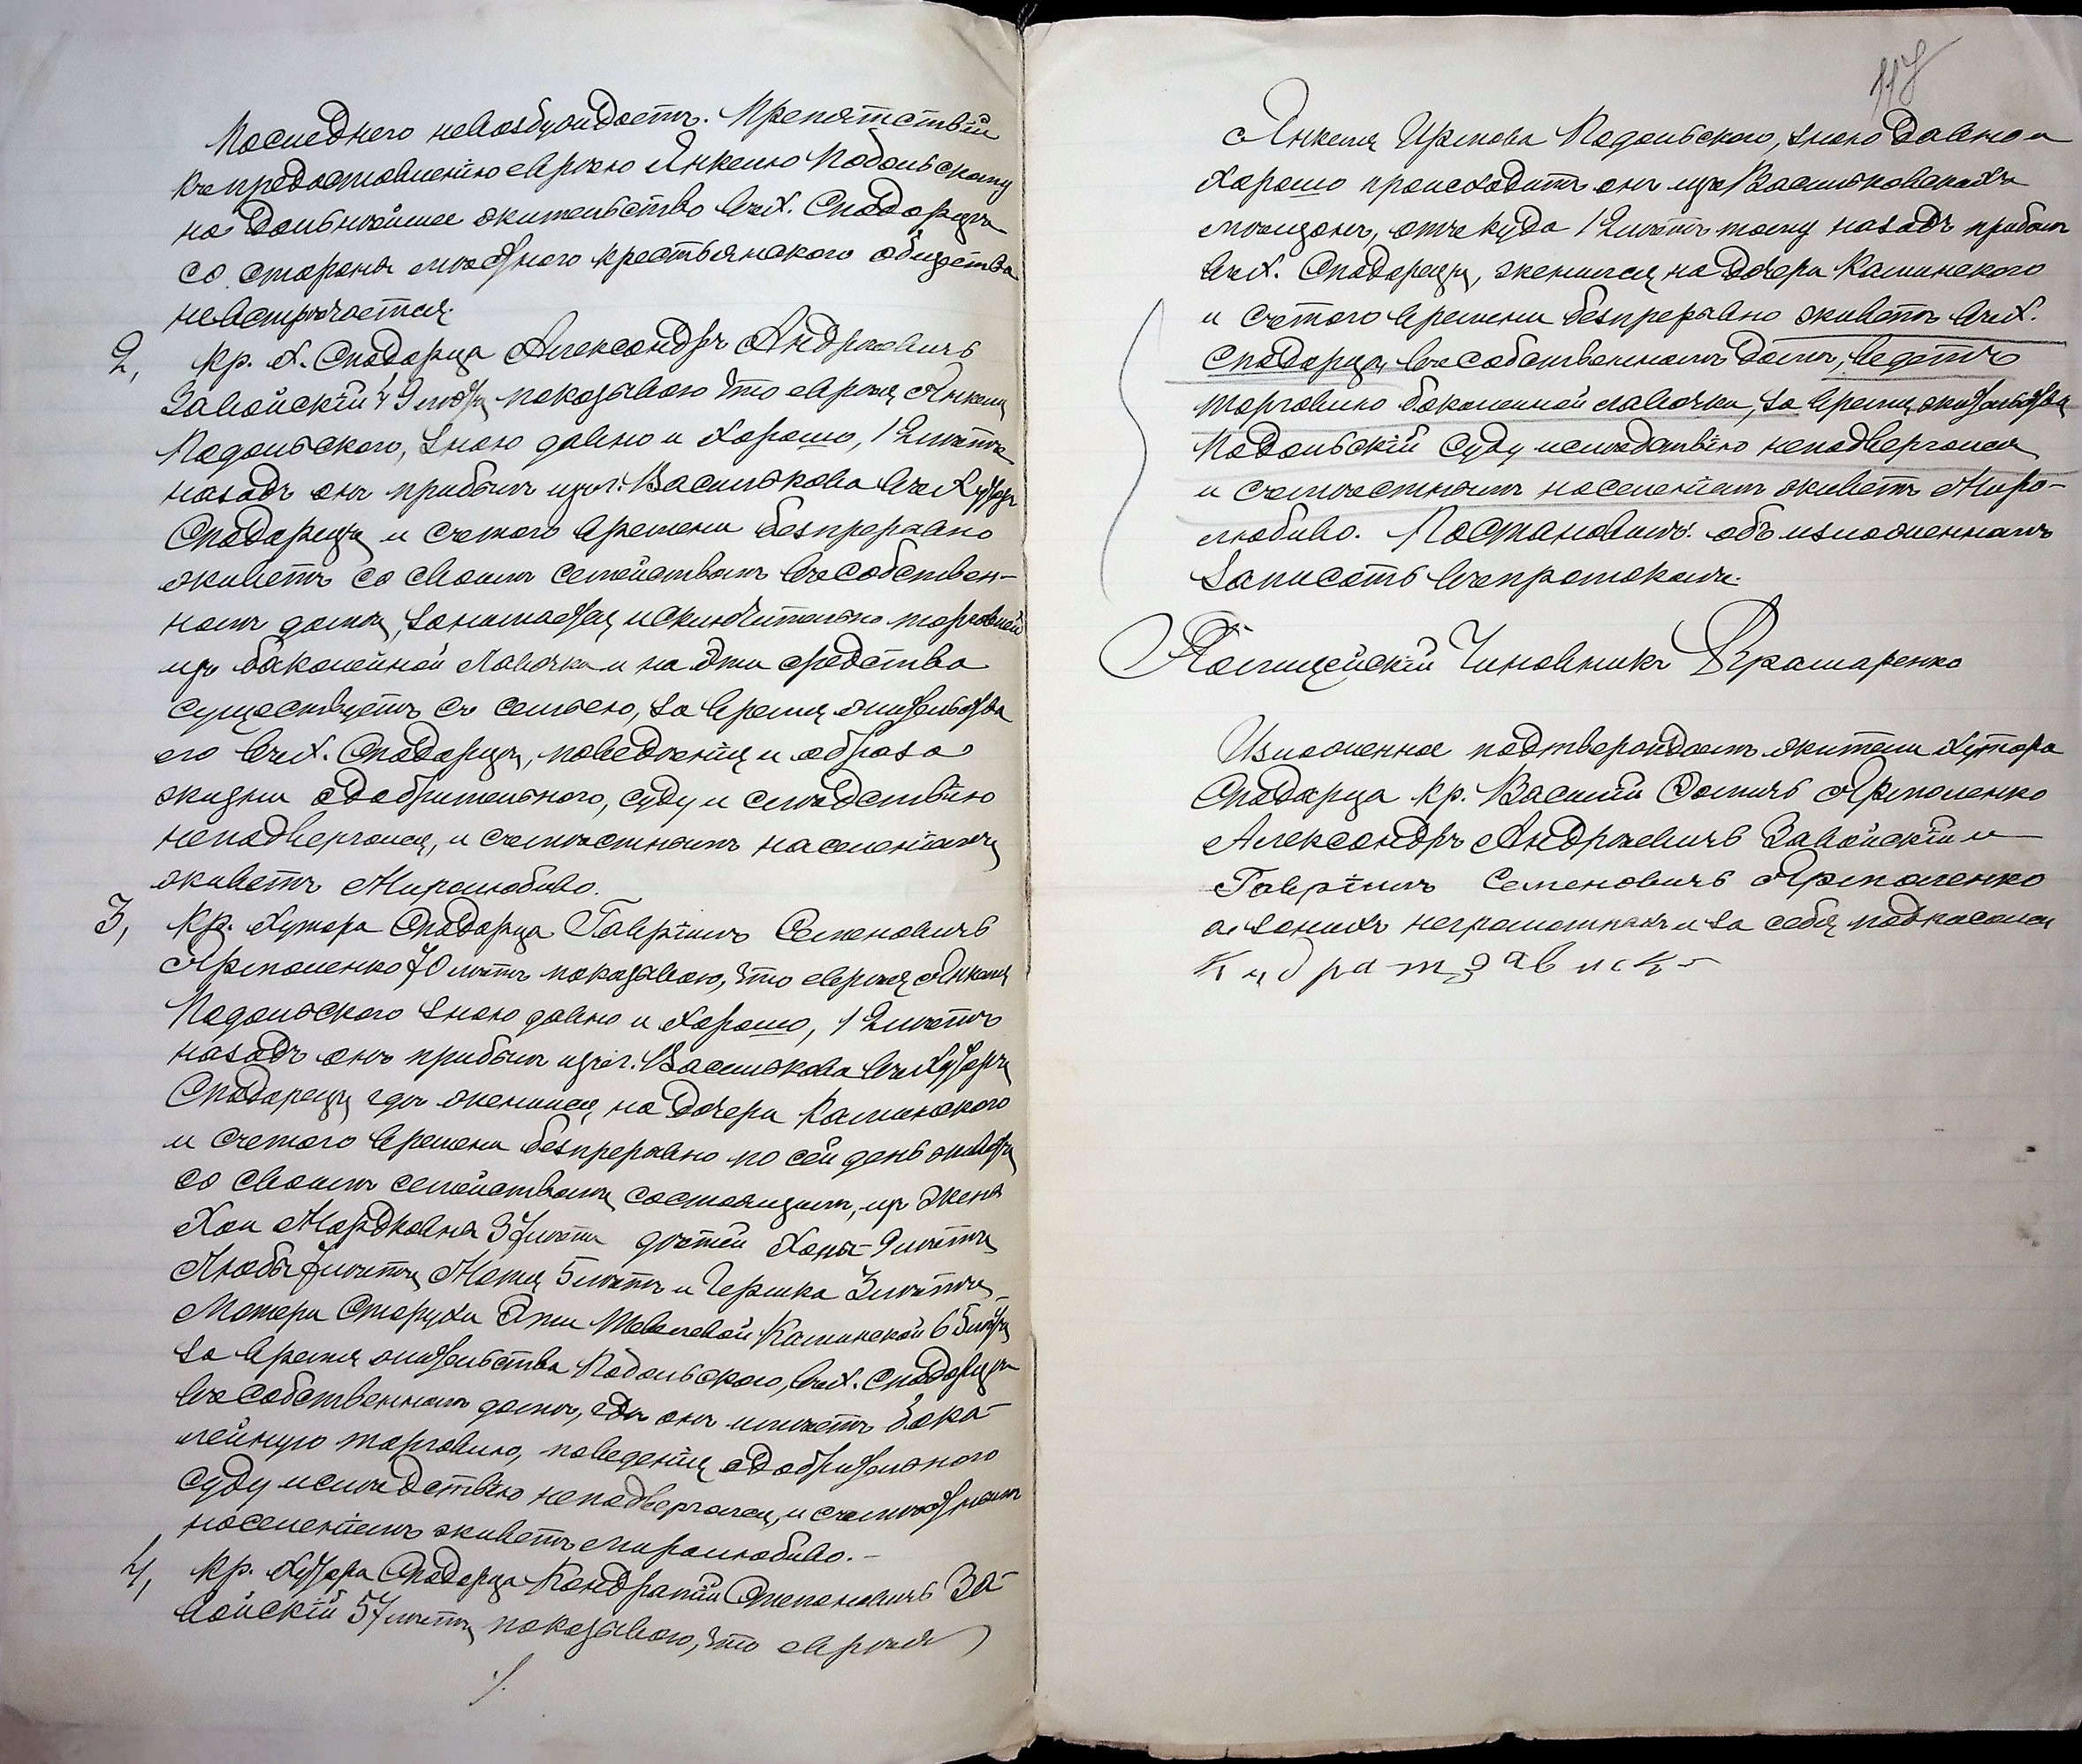 Последнего невозбуждаетъ. Препятствій
къ предоставленію еврею Янкелю Подольскому
на дальнейшее жительство въ х. Сподарцъ
со стороны мѣстнаго крестьянскаго общества
невстрѣчается.
2, Кр. х. Сподарца Александръ Андреевичъ
Завойскій 49 лѣтъ показываю что еврея Янкеля
Подольскаго, знаю давно и хорошо, 12 лѣтъ
назадъ онъ прибылъ изъ г. Василькова въ хуторъ
Сподарецъ и съ того времени безпрерывно
живетъ со своимъ семействомъ въ собствен-
номъ домѣ, занимается исключительно торговлей
изъ бакалейной лавочки и на эти средства
существуетъ съ семьею, за время жительства
его въ х. Сподарцѣ, поведенія и образа
жизни одобрительнаго, суду и слѣдствію
неподвергался, и съ мѣстнымъ населеніемъ
живетъ миролюбиво.
3, Кр. хутора Сподарца Гавріилъ Семеновичъ
Ярмоленко 70 лѣтъ показываю, что еврея Янкеля
Подольскаго знаю давно и хорошо, 12 лѣтъ
назадъ онъ прибылъ изъ г. Василькова въ хуторъ
Сподарецъ гдѣ женился на дочери Каминскаго
и съ того времени безпрерывно по сей день живетъ
со своимъ семействомъ состоящимъ, изъ жены
Хаи Мордковны 37 лѣтъ дѣтей Ханы 9 лѣтъ
Любы 7 лѣтъ, 5 лѣтъ и Гершка 3 лѣтъ
Матери старухи Каминской 65 лѣтъ
за время жительства Подольскаго, въ х. Сподарцѣ
въ собственномъ домѣ, гдѣ онъ имѣетъ бака-
лейную торговлю, поведенія одобрительнаго
суду и слѣдствію неподвергался, и съ мѣстнымъ
населеніемъ живетъ миролюбиво.-
4, Кр. хутора Сподарца Кондратій Степановичъ За-
войскій 57 лѣтъ, показываю, что еврея
Янкеля Подольскаго, знаю давно и
хорошо происходитъ онъ изъ Васильковскихъ
мѣщанъ, отъ куда 12 лѣтъ тому назадъ прибылъ
въ х. Сподарецъ, женился на дочери Каминскаго
и съ того времени безпрерывно живетъ въ х.
Сподарцѣ, въ собственномъ домѣ, ведетъ
торговлю бакалейной лавочки, за время жительства
Подольскій суду и слѣдствію неподвергался
и съ мѣстнымъ населеніемъ живетъ миро-
любиво. Постановилъ: объ изложенномъ
записать въ протоколъ.
Полицейскій Чиновникъ Крамаренко
Изложенное подтверждаемъ жители хутора
Сподарца кр. Василій Ярмоленко
Александръ Андреевичъ Завойскій и
Гавріилъ Семеновичъ Ярмоленко
а за нихъ неграмотныхъ и за себя подписался